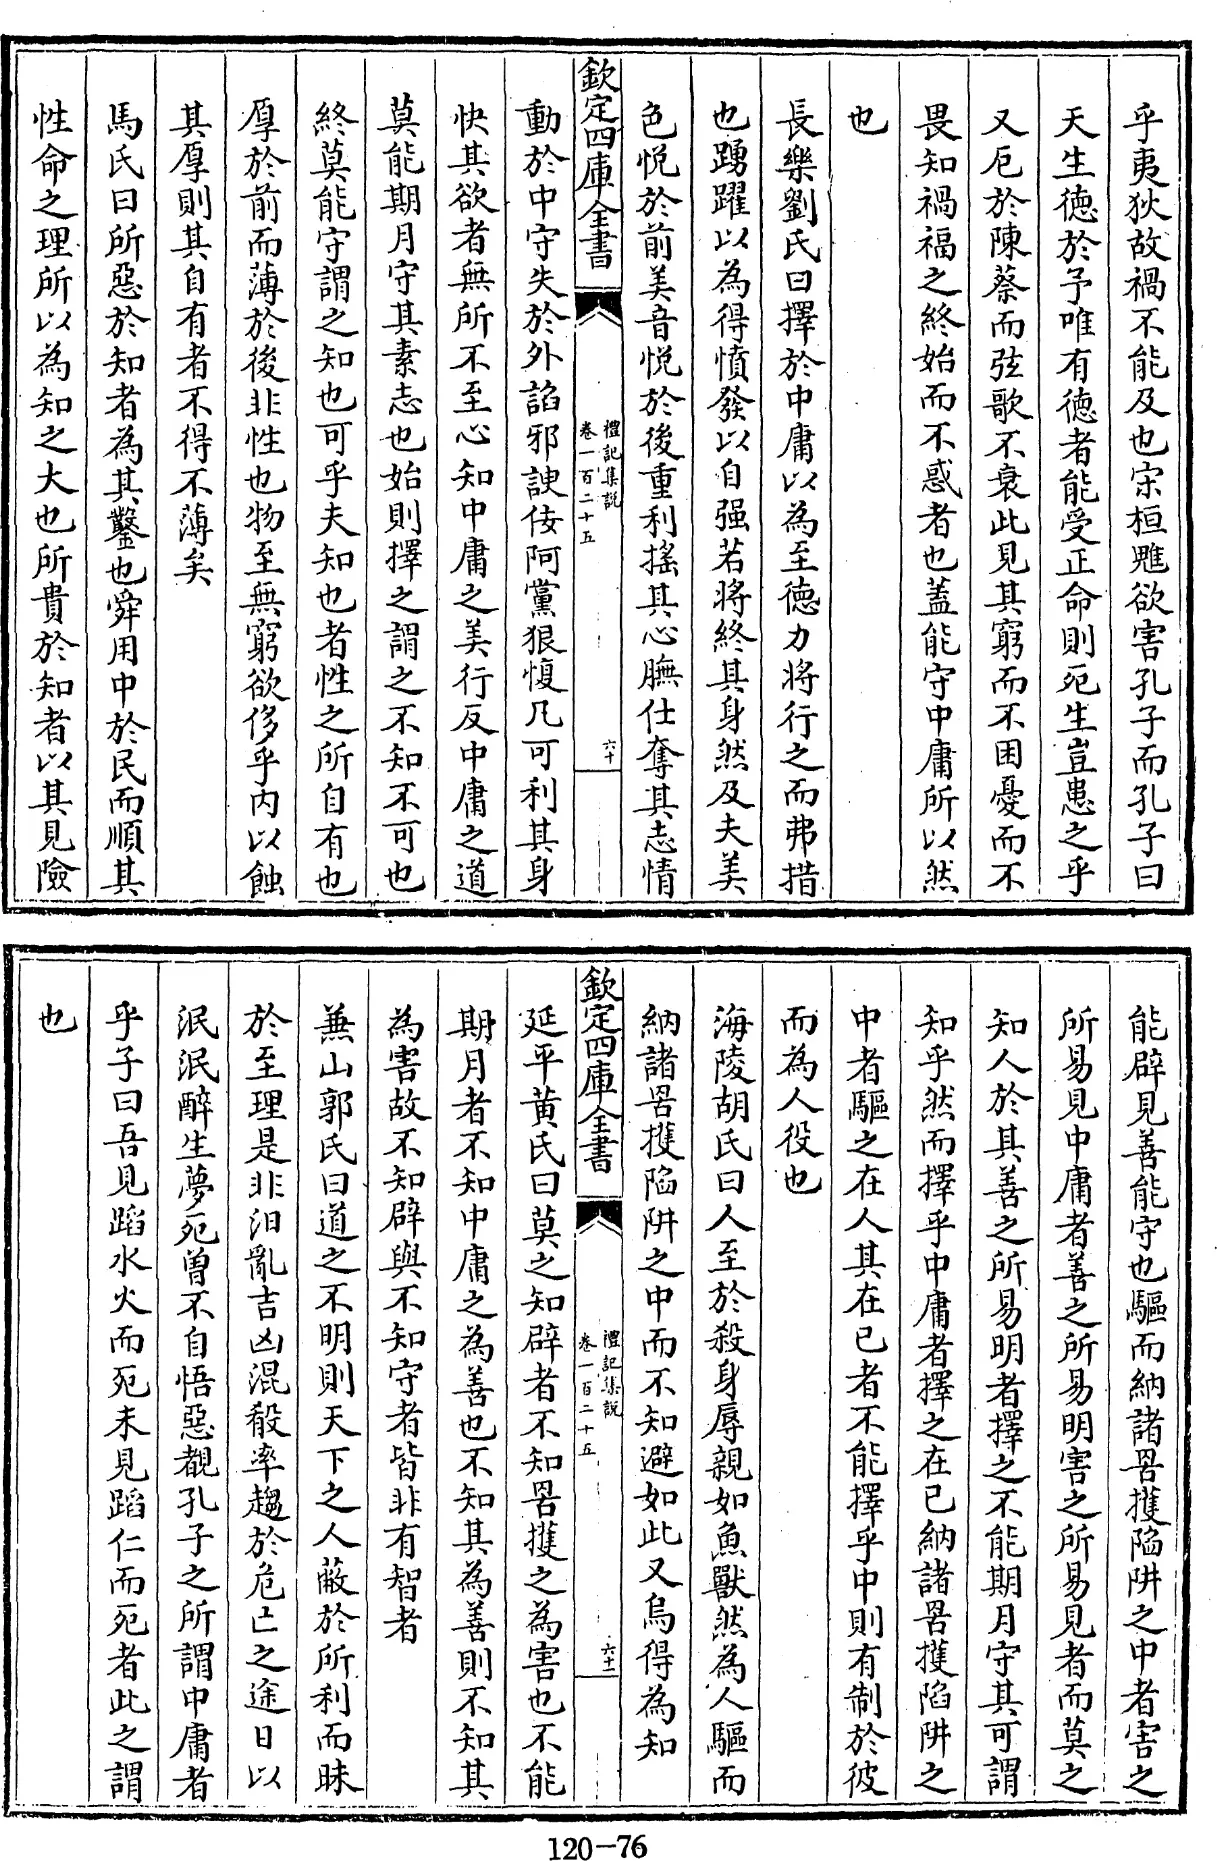 乎夷狄故禍不能及也宋桓魋欲害孔子而孔子曰
天生德於予唯有德者能受正命則死生豈患之乎
又厄於陳蔡而弦歌不衰此見其窮而不困憂而不
畏知禍福之終始而不惑者也蓋能守中庸所以然
也
長樂劉氏曰擇於中庸以為至德力將行之而弗措
也踴躍以為得憤發以自强若將終其身然及夫美
色悦於前美音悦於後重利搖其心膴仕奪其志情
欽定四庫全書
禮記集說
卷一百二十五
六十
動於中守失於外諂邪諛佞阿黨狠愎凡可利其身
快其欲者無所不至心知中庸之美行反中庸之道
莫能期月守其素志也始則擇之謂之不知不可也
終莫能守謂之知也可乎夫知也者性之所自有也
厚於前而薄於後非性也物至無窮欲侈乎内以蝕
其厚則其自有者不得不薄矣
馬氏曰所惡於知者為其鑿也舜用中於民而順其
性命之理所以為知之大也所貴於知者以其見險
能辟見善能守也驅而納諸罟擭陷阱之中者害之
所易見中庸者善之所易明害之所易見者而莫之
知人於其善之所易明者擇之不能期月守其可謂
知乎然而擇乎中庸者擇之在已納諸罟擭陷阱之
中者驅之在人其在已者不能擇乎中則有制於彼
而為人役也
海陵胡氏曰人至於殺身辱親如魚獸然為人驅而
納諸罟擭陷阱之中而不知避如此又烏得為知
欽定四庫全書
禮記集說
卷一百二十五
六十一
延平黄氏曰莫之知辟者不知罟擭之為害也不能
期月者不知中庸之為善也不知其為善則不知其
為害故不知辟與不知守者皆非有智者
兼山郭氏曰道之不明則天下之人蔽於所利而昧
於至理是非汨亂吉凶混殽率趨於危亡之途日以
泯泯醉生夢死曾不自悟惡覩孔子之所謂中庸者
乎子曰吾見蹈水火而死未見蹈仁而死者此之謂
也
120-76